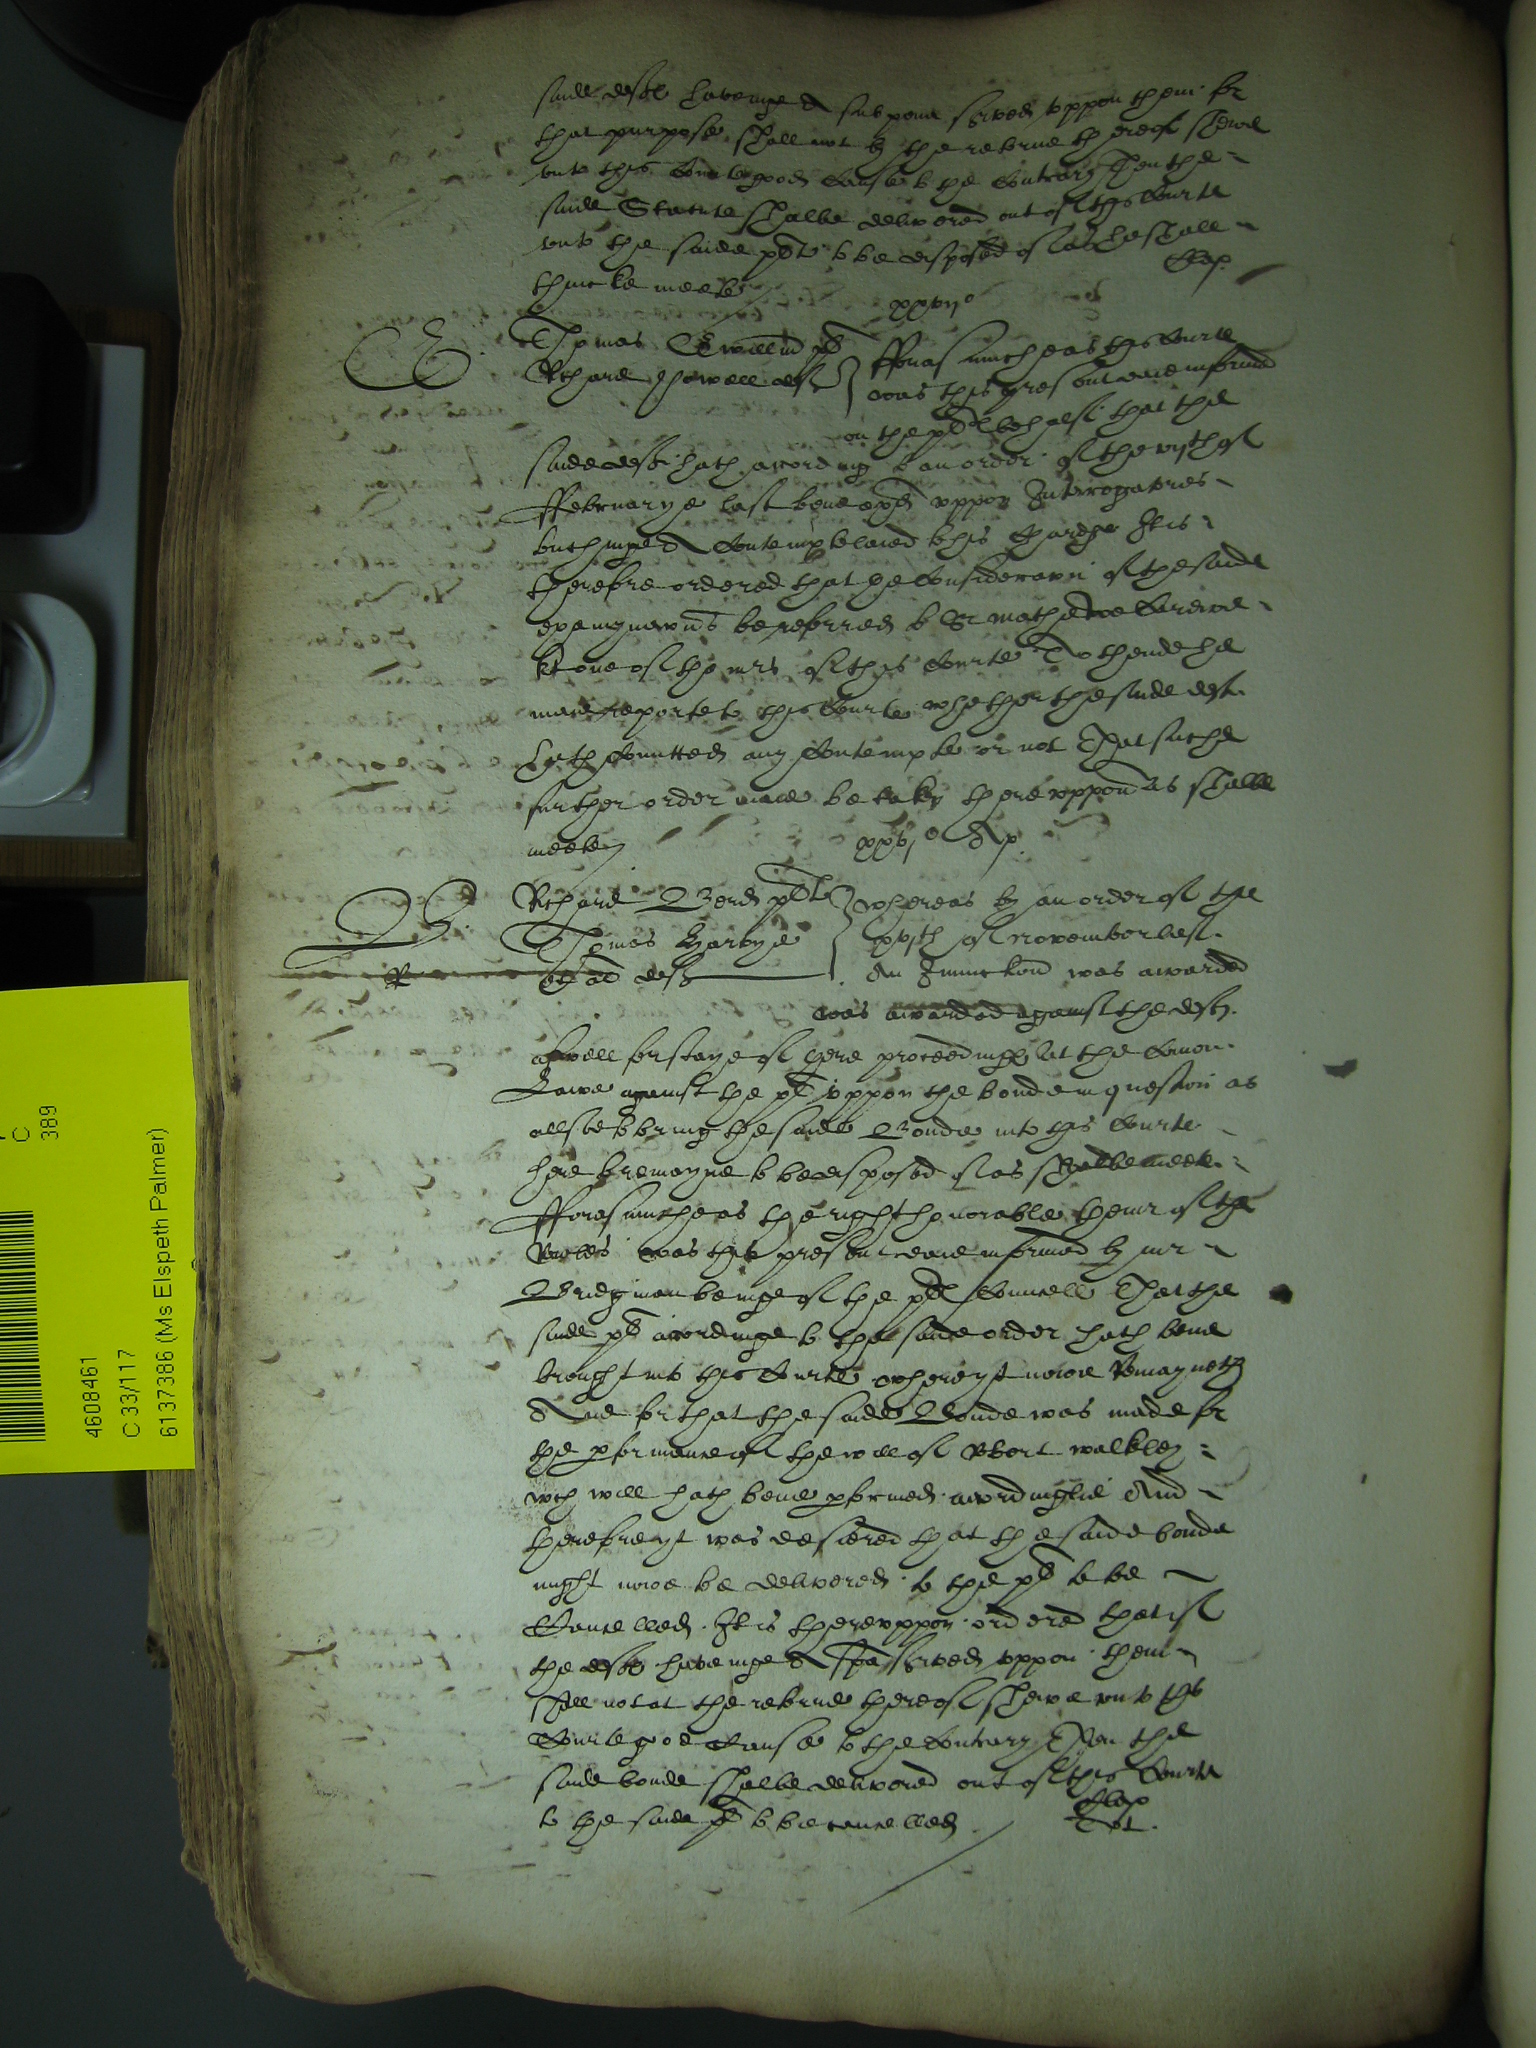 saide defts haveinge A subpena served uppon them for
that purpose shall not by the retorne thereof shewe
unto this Courte good cause to the Contrary Then the
saide Statute shalbe delivered out of this Courte
unto the saide plt to be disposed of as he shall
thincke meete
xxvijo
Thomas plt
Richard Howell deft
fforasmuche as this Courte
was this present daie informed
on the plts behalf that the
saide deft hath according to an order of the of
ffebruarye last bene exd uppon Interrogatories
touchinge A Contempt laied to his Chardge It is
therefore ordered that the Consideracion of the saide
examynacons be referred to Sr Mathewe Carewe
kt one of the mrs of this Courte To thende he
maie reporte to this Courte whether the saide deft
hath comitted any Contempte or not That suche
further order maie be taken thereuppon as shalbe
meete
xxvjo Ap
B
R
Richard plt
Thomas
et ad defts
whereas by an order of the
xxvth of November last
An Iniunccond was awarded
was awarded against the defts
aswell for staye of there proceedings at the Comon
Lawe against the plt uppon the bonde in question as
allsoe to bring the saide Bonde into this Courte
here to remayne to be disposed of as shalbe meete
fforasmuche as the right honorable the mr of the
Roules was this present daie informed by mr
Bridgman beinge of the plts Councell That the
saide plt accordinge to that saide order hath bene
brought into this Courte where yt nowe Remayneth
And for that the saide Bonde was made for
the pformance of the will of Robert Walkley
wch will hath bene pformed accordinglie And
therefore yt was desiered that the saide bonde
might nowe be delivered to the plt to be
Cancelled It is thereuppon ordered that if
the defts haveinge A spa served uppon them
shall not at the retorne thereof shewe unto this
Courte good Cause to the Contrary Then the
saide bonde shalbe delivered out of this Courte
to the saide plt to be cancelled
4608461
C 33/117
6137386 (Ms Elspeth Palmer)
C
389